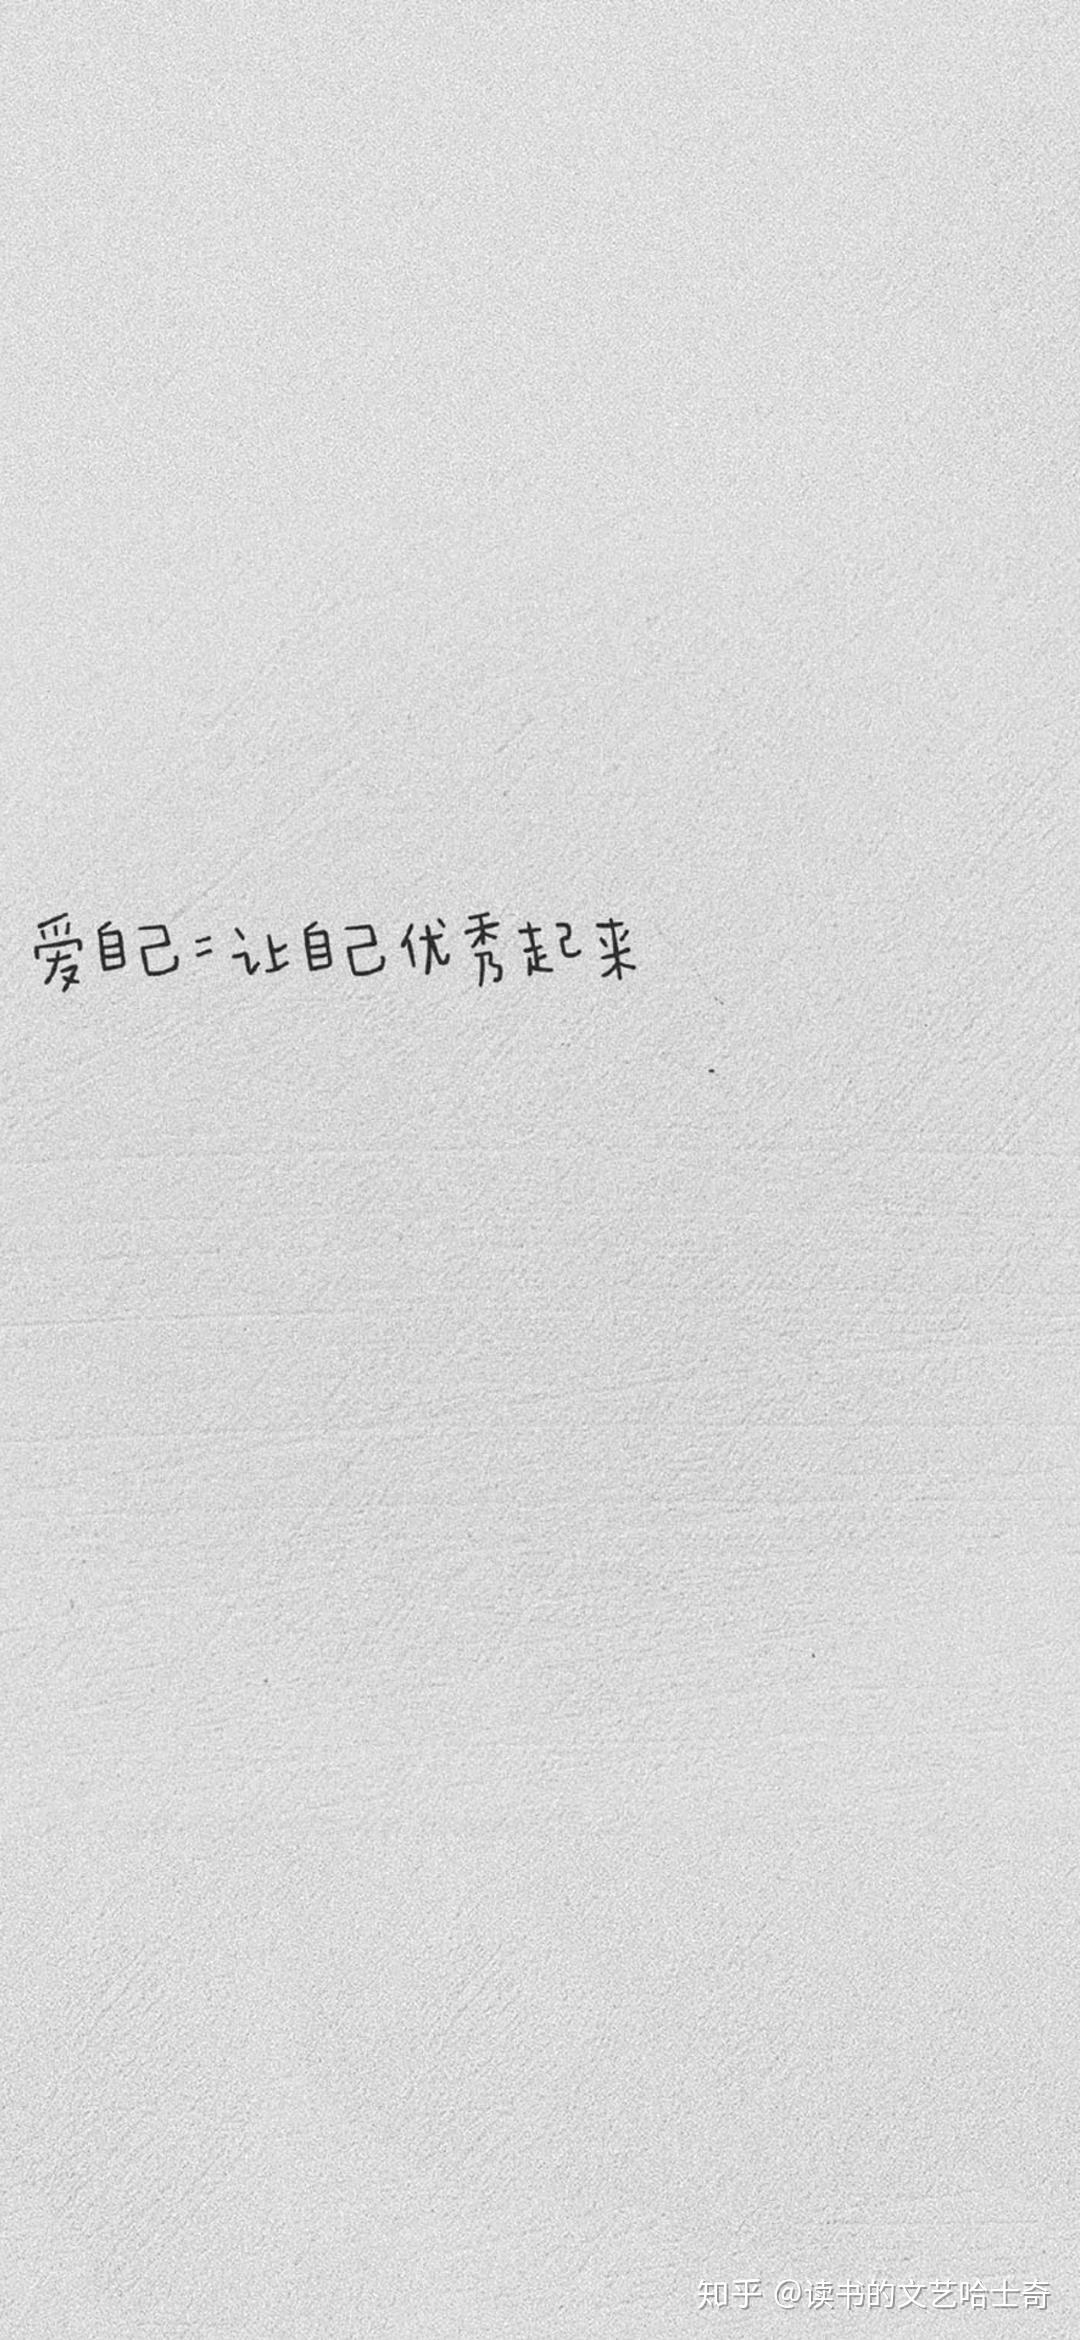 爱自己=让自己优秀起来
知乎 @读书的文艺哈士奇